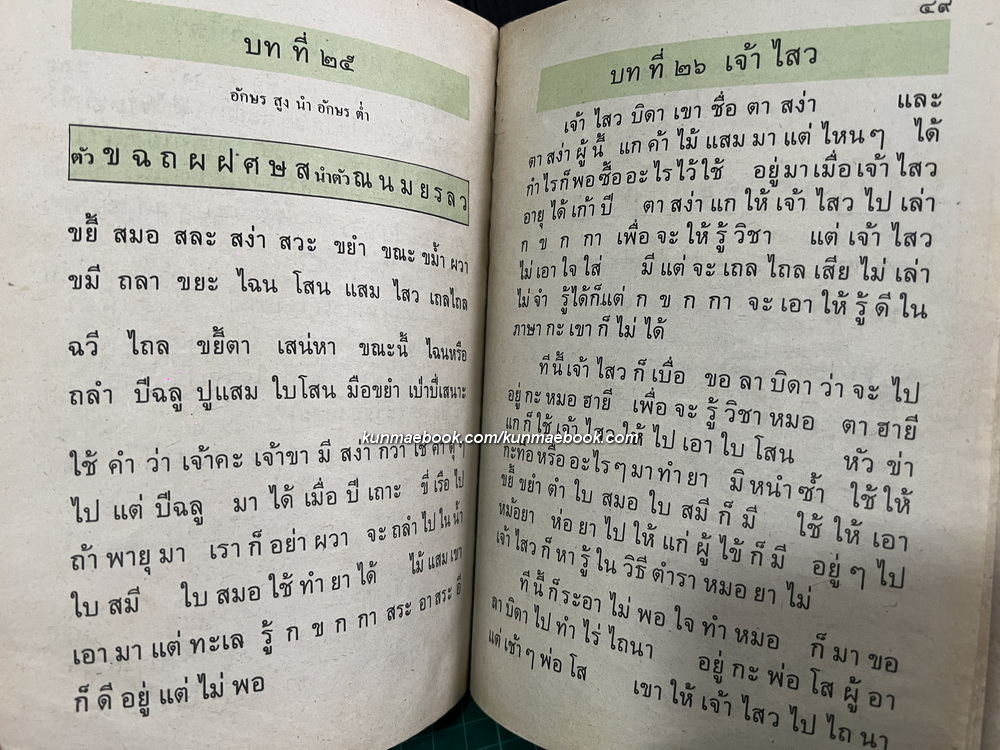 บท ที่ ๒๕
อักษร สูง นำ อักษร ต่ำ
ตัว ข ฉ ถ ผ ฝ ศ ษ ส นำตัว ณ น ม ย ร ล ว
ขยี้ สมอ สละ สง่า สวะ ขยำ ขณะ ขม้ำ ผวา
ขมี ถลา ขยะ ไฉน โสน แสม ไสว เถลไถล
ฉวี ไถล ขยี้ตา เสน่หา ขณะนี้ ไฉนหรือ
ถลำ ปีฉลู ปูแสม ใบโสน มือขยำ เป่าปี่เสนาะ
ใช้ คำ ว่า เจ้าคะ เจ้าขา มี สง่า กว่า ใช้ คำ ดุๆ
ไป แต่ ปีฉลู มา ได้ เมื่อ ปี เถาะ ขี่ เรือ ไป
ถ้า พายุ มา เรา ก็ อย่า ผวา จะ ถลำ ไป ใน น้ำ
ใบ สมี ใบ สมอ ใช้ ทำ ยา ได้ ไม้ แสม เขา
เอา มา แต่ ทะเล รู้ ก ข ก กา สระ อา สระ อี
ก็ ดี อยู่ แต่ ไม่ พอ
๔๙
บท ที่ ๒๖ เจ้า ไสว
เจ้า ไสว บิดา เขา ชื่อ ตา สง่า และ
ตา สง่า ผู้ นี้ แก ค้า ไม้ แสม มา แต่ ไหน ๆ ได้
กำไร ก็ พอ ซื้อ อะ ไร ไว้ ใช้ อยู่ มา เมื่อ เจ้า ไสว
อายุ ได้ เก้า ปี ตา สง่า แก ให้ เจ้า ไสว ไป เล่า
ก ข ก กา เพื่อ จะ ให้ รู้ วิชา แต่ เจ้า ไสว
ไม่ เอา ใจ ใส่ มี แต่ จะ เถล ไถล เสีย ไม่ เล่า
ไม่ จำ รู้ ได้ ก็ แต่ ก ข ก กา จะ เอา ให้ รู้ ดี ใน
ภาษา กะ เขา ก็ ไม่ ได้
ที นี้ เจ้า ไสว ก็ เบื่อ ขอ ลา บิดา ว่า จะ ไป
อยู่ กะ หมอ ฮายี เพื่อ จะ รู้ วิชา หมอ ตา ฮายี
แก ก็ ใช้ เจ้า ไสว ให้ ไป เอา ใบ โสน หัว ข่า
กะทือ หรือ อะไร ๆ มา ทำ ยา มิ หนำ ซ้ำ ใช้ ให้
ขยี้ ขยำ ตำ ใบ สมอ ใบ สมี ก็ มี ใช้ ให้ เอา
หม้อยา ห่อ ยา ไป ให้ แก่ ผู้ ไข้ ก็ มี อยู่ ๆ ไป
เจ้า ไสว ก็ หา รู้ ใน วิธี ตำรา หมอ ยา ไม่
ที นี้ ก็ ระอา ไม่ พอ ใจ ทำ หมอ ก็ มา ขอ
ลา บิดา ไป ทำ ไร่ ไถนา อยู่ กะ พ่อ โส ผู้ อา
แต่ เช้า ๆ พ่อ โส เขา ให้ เจ้า ไสว ไป ไถ นา
kunmaebook.com/kunmaebook.com